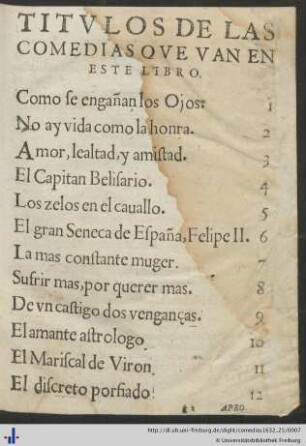 TITVLOS DE LAS
COMEDIAS QVE VAN EN
ESTE LIBRO.
Como ſe engañan los Ojos: 1
No ay vida como la honra. 2
Amor, lealtad, y amiſtad. 3
El Capitan Beliſario. 4
Los zelos en el cauallo. 5
El gran Seneca de Eſpaña, Felipe II. 6
La mas conſtante muger. 7
Sufrir mas, por querer mas. 8
De vn caſtigo dos venganças. 9
El amante aſtrologo 10
El Mariſcal de Viron. 11
El diſcreto porfiado: 12
APRO
http://dl.ub.uni-freiburg.de/diglit/comedias1632_25/0007
© Universitätsbibliothek Freiburg